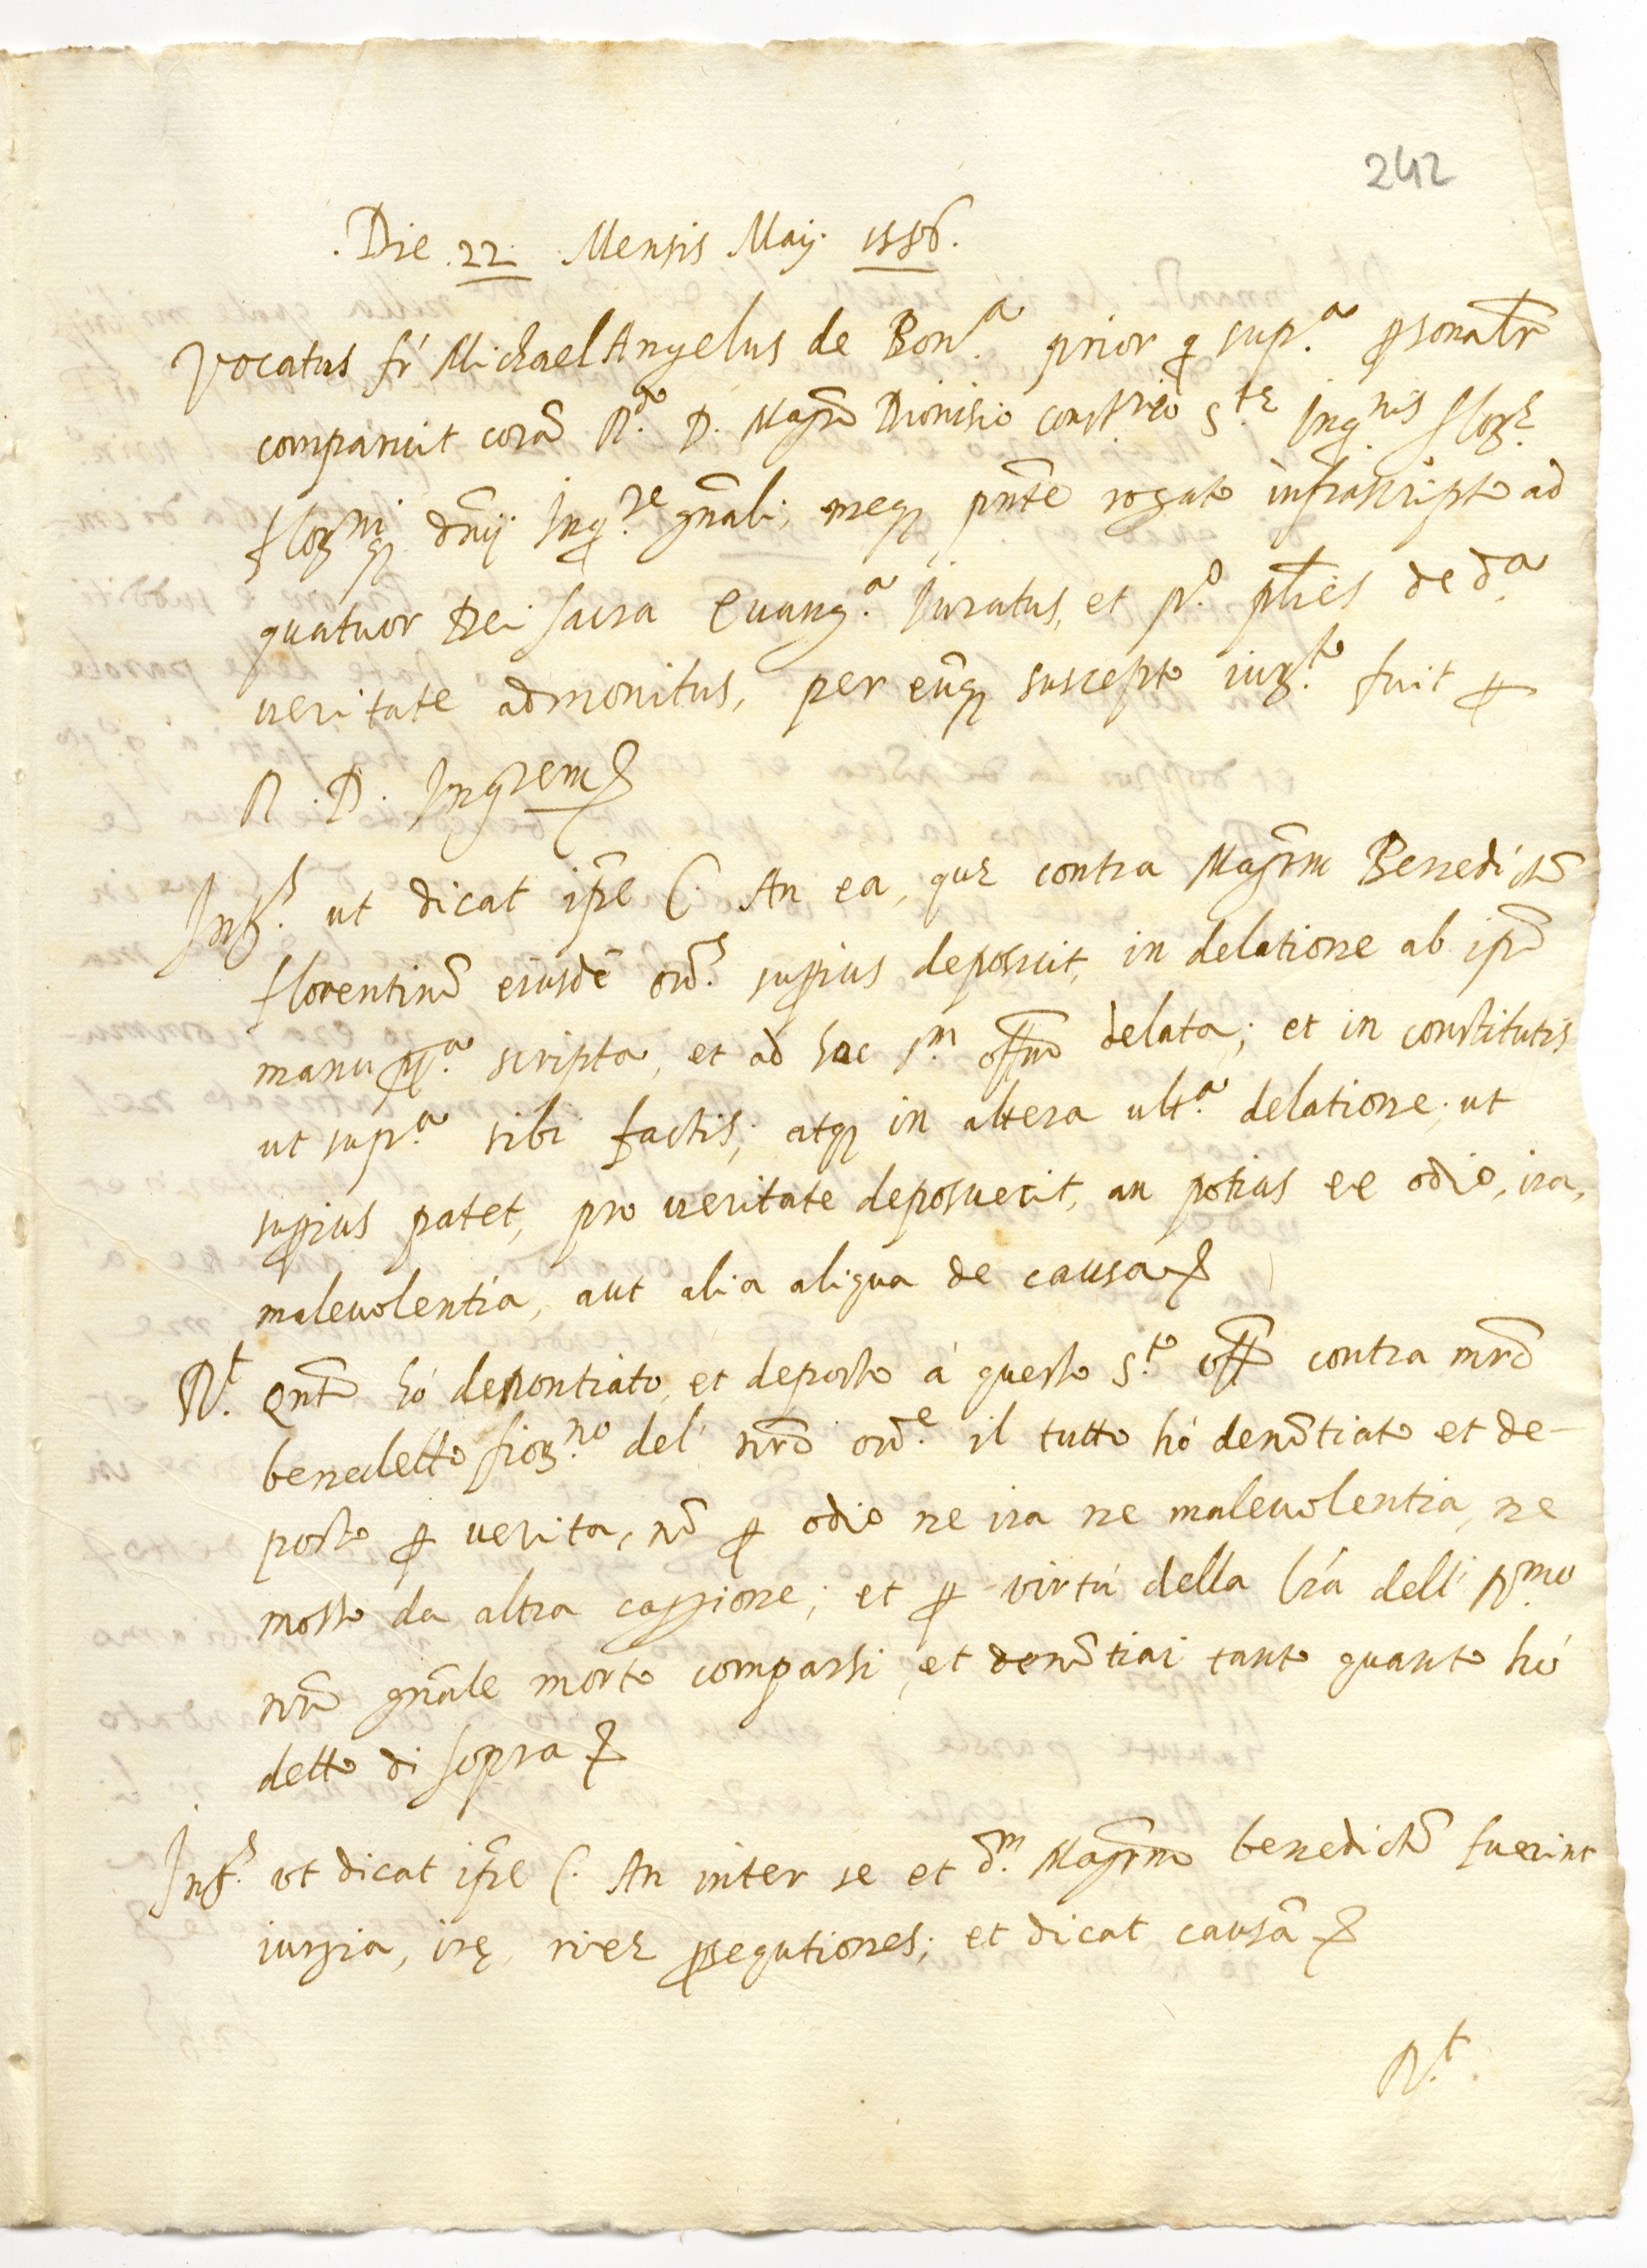 242
.Die .22. Mensis Maij. 1586.
Vocatus fr̃ Michael Angelus de Bon.ª prior q̃ sup.ª ꝑsonalr̃
comparuit corã R.do D. Magrõ Dionisio S.tę Inq.nis
dñij Inq.re gñali; meq; pñte rogato infrascripto ad
quatuor Dei sacra Euang.ª Iuratus, et p.º plĩes de d.ª
veritate admonitus, per eũq; suscepto iur.to fuit ꝑ
R. D. Inqrem
Int.s ut dicat ip̃e C. An ea, quę contra Magrm̃ Benedictũ
florentinũ eiusdẽ ord.s supius deposuit, in delatione ab ip̃o
manu ꝓp.ª scripta, et ad hoc s.m offm̃ delata; et in constitutis
ut sup.ª sibi factis; atq; in altera ult.ª delatione; ut
supius patet, pro veritate deposuerit, an potius ex odio, ira,
malevolentia, aut alia aliqua de causa
R.t Qnto hó denontiato, et deposto á questo S.to offõ contra mrõ
benedetto fior.no del' nrõ ord.e il tutto hó denõtiato et de-
posto ꝑ verita, nõ ꝑ odio ne ira ne malevolentia, ne
mosso da altra caggione; et ꝑ virtú della lrá dell' R.mo
nrõ gñale morto comparsi, et denõtiai tanto quanto hó
detto di sopra
Int.s ut dicat ip̃e C. An inter se et d.m Magrm̃ benedictũ fuerint
iurgia, irę, rixę ꝑsequtiones; et dicat causã
R.t.